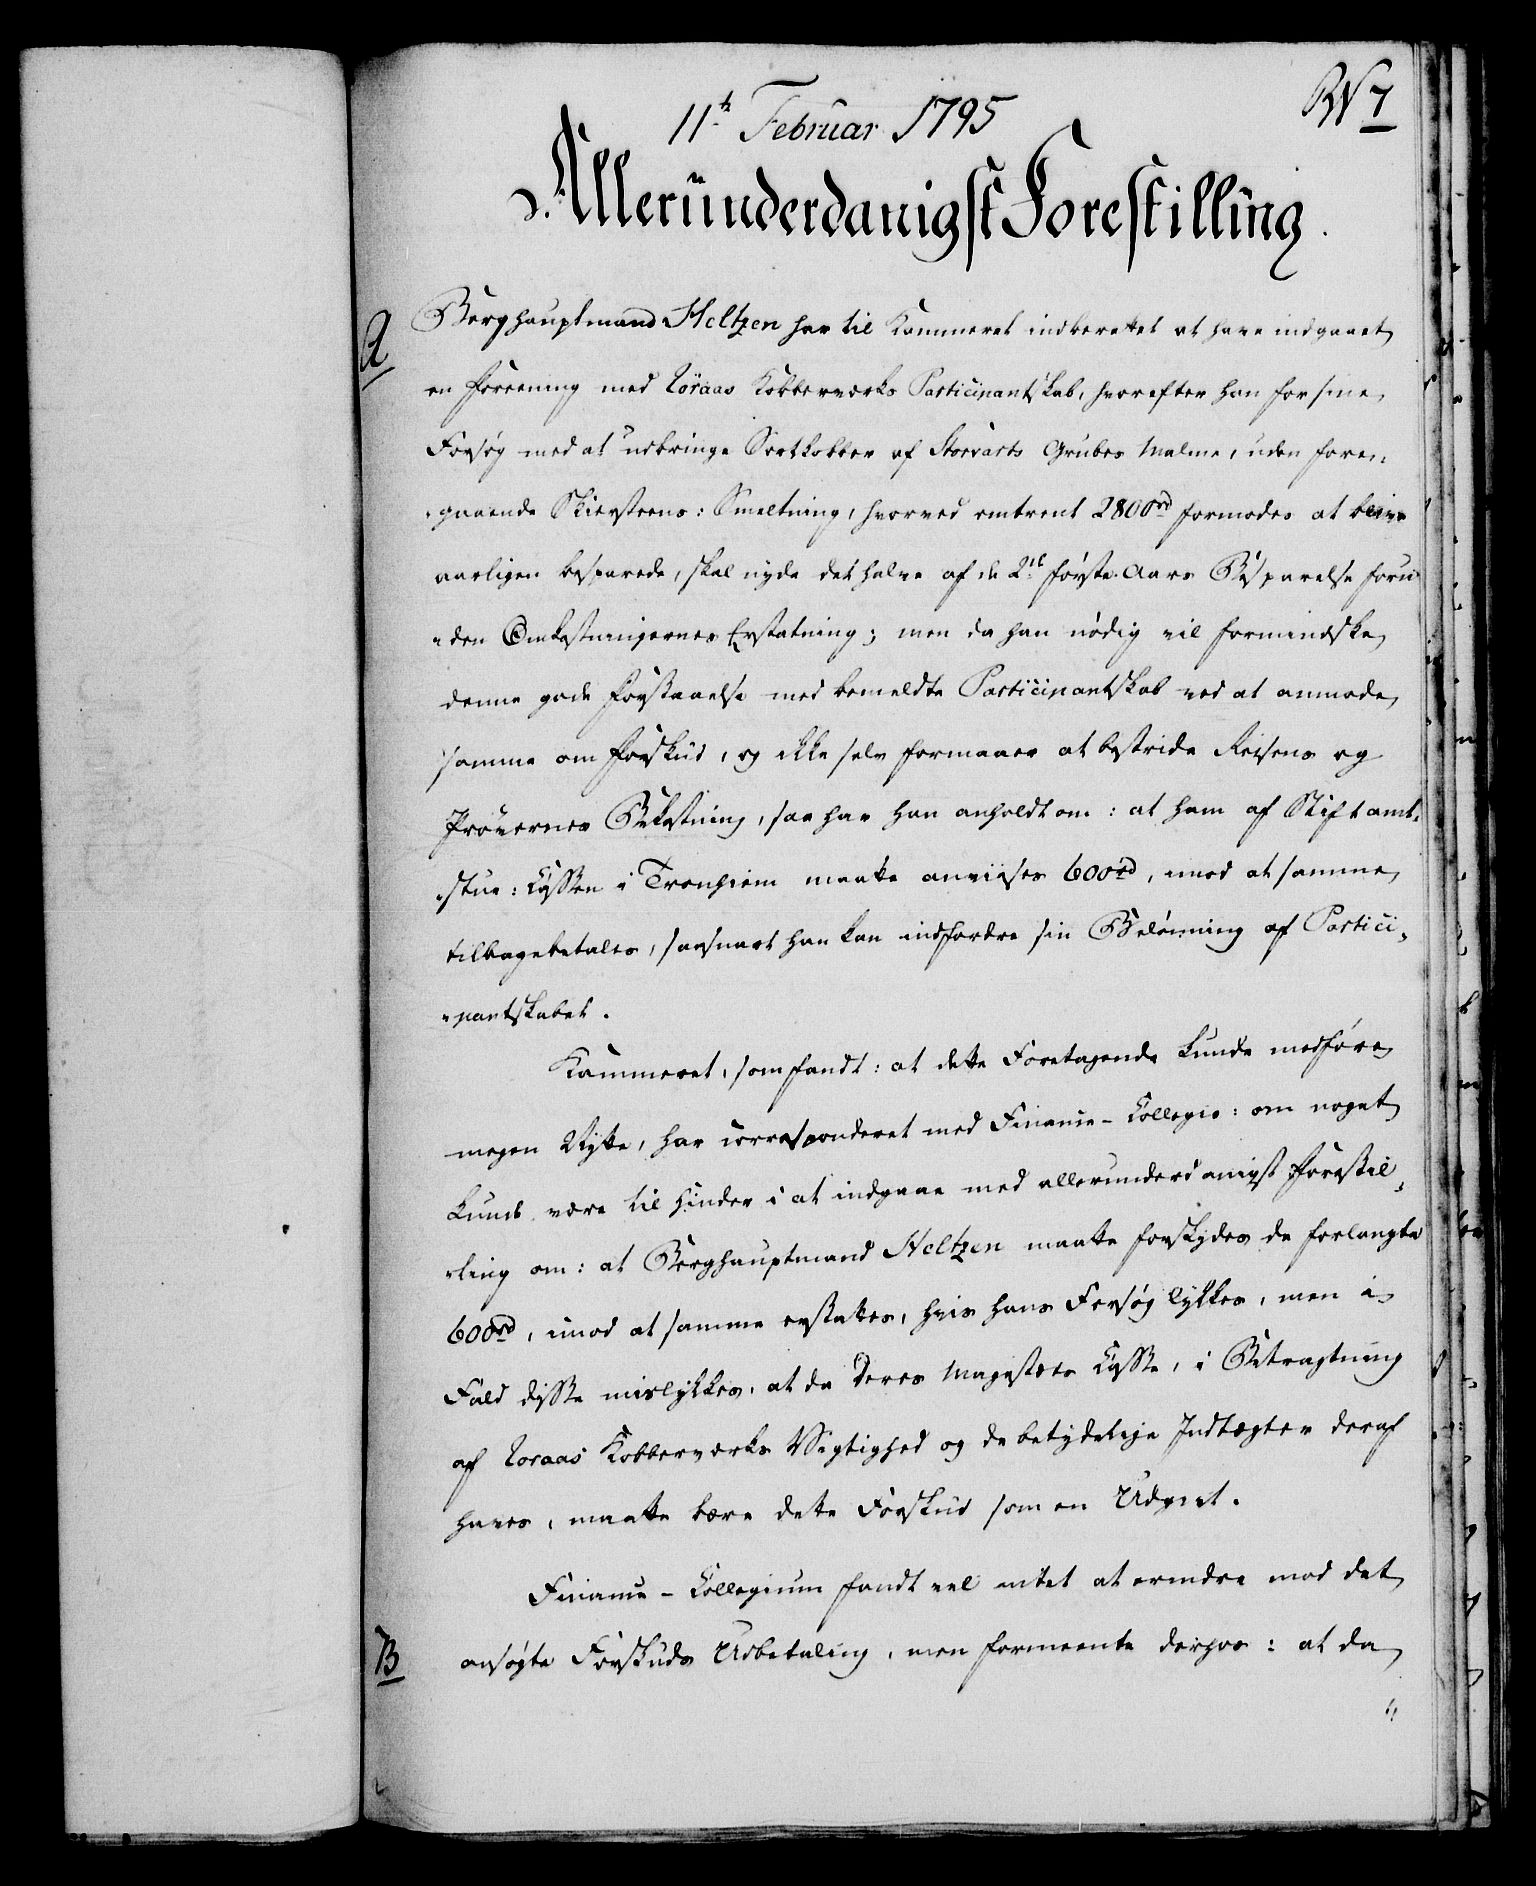 11te Februar 1795
RN 7
Allerunderdanigst Forestilling.
A
Berghauptmand Heltzen har til Kammeret indberettet at have indgaaet
en Foreening med Röraas Kobberverks Participantskab, hvorefter han for sine
Forsøg med at udbringe Sortkobber af Storvarts Grubes Malme, uden fore-
-gaaende Skiersteens: Smeltning, hvorved omtrent 2800rd formodes at blive
aarligen besparede, skal nyde det halve af de 2de første Aars Besparelse foru-
-den Omkostningernes Erstatning; men da han nødig vil formindske
denne gode Forstaaelse med bemeldte Participantskab ved at anmode
samme om Forskud, og ikke selv formaaer at bestride Reisens og
Prøvernes Bekostning, saa har han anholdt om: at ham af Stiftamt-
-stue: Cassen i Tronhiem maatte anviises 600rd, imod at samme
tilbagebetales, saasnart han kan indfordre sin Belønning af Partici-
-pantskabet.
Kammeret, som fandt: at dette Foretagende kunde medføre
megen Nytte, har correspondert med Finance-Collegio: om noget
kunde være til Hinder i at indgaae med allerunderdanigst Forestil-
-ling om: at Berghauptmand Heltzen maatte forskydes de forlangte
600rd, imod at samme erstattes, hvis hans Forsøg lykkes, men i
Fald disse mislykkes, at da Deres Majestæts Casse, i Betragtning
af Röraas Kobberverks Vigtighed og de betydelige Indtægter deraf
haves, maatte bære dette Forskud som en Udgivt.
Finance-Collegium fandt vel intet at erindre mod det
B
ansøgte Forskuds Udbetaling, men formeente derhos: at da